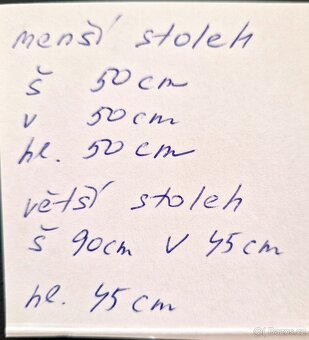 menší stoleh
š 50cm
v 50cm
hl. 50cm
větší stoleh
š 90cm v 45cm
hl. 45cm